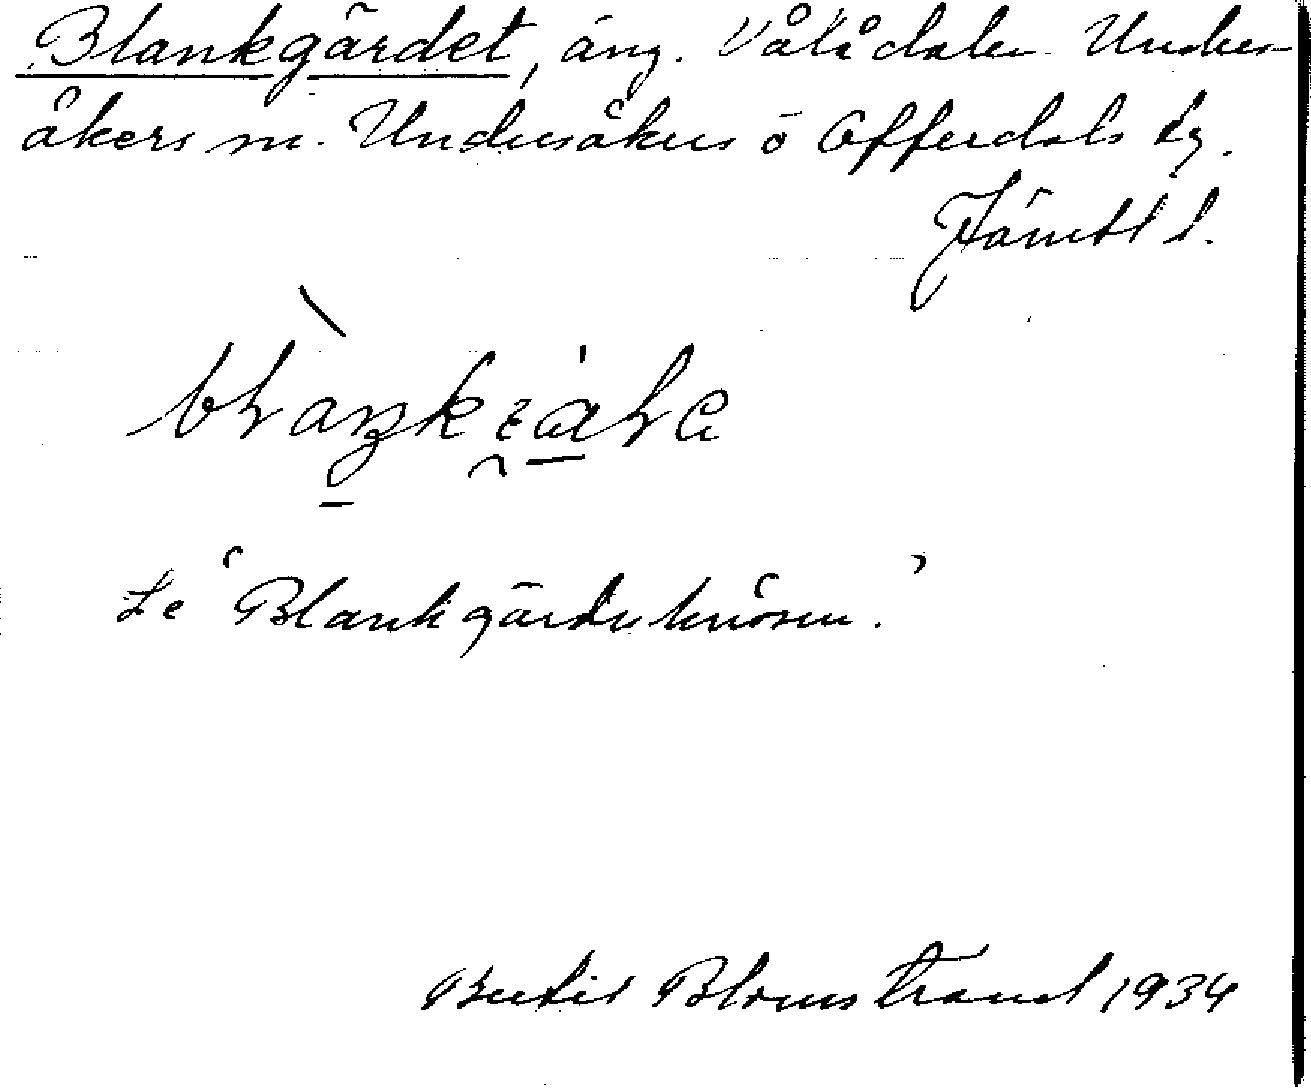 Blankgärdet, äng. Vålådalen Unders-
åkers sn. Undersåkers o Offerdals tg.
Jämtl l.
Se "Blankgärdsknösen."
Bertil Blomstrand 1934